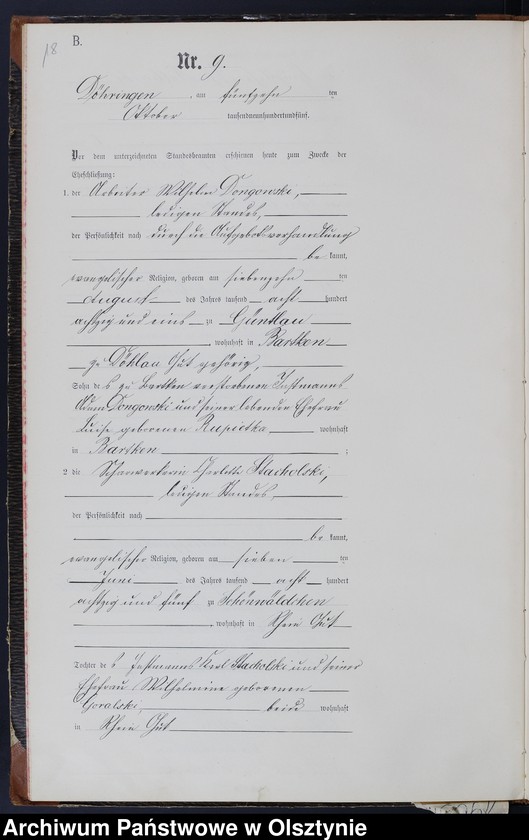 18
B.
Nr. 9.
Döhringen, am fünfzehn ten
Oktober tausendneunhundertundfünf.
Vor dem unterzeichneten Standesbeamten erschienen heute zum Zwecke der
Eheschließung:
1. der Arbeiter Wilhelm Dongowski,
ledigen Standes,
der Persönlichkeit nach durch die Aufgebotsverhandlung
be kannt,
evangelischer Religion, geboren am siebenzehn ten
August des Jahres tausend acht hundert
achtzig und eins zu Güntlau
, wohnhaft in Bartken
zu Döhlau Gut gehörig,
Sohn des zu Bartken verstorbenen Instmanns
Adam Dongowski und seiner lebenden Ehefrau
Luise geborenen Rupietta wohnhaft
in Bartken ;
2 die Scharwerkerin Charlotte Stacholski,
ledigen Standes,
der Persönlichkeit nach
be kannt,
evangelischer Religion, geboren am sieben ten
Juni des Jahres tausend acht hundert
achtzig und fünf zu Schönwäldchen
, wohnhaft in Rhein Gut
Tochter des Instmanns Karl Stacholski und seiner
Ehefrau Wilhelmine geborenen
Goralski, beide wohnhaft
in Rhein Gut
Archiwum Państwowe w Olsztynie